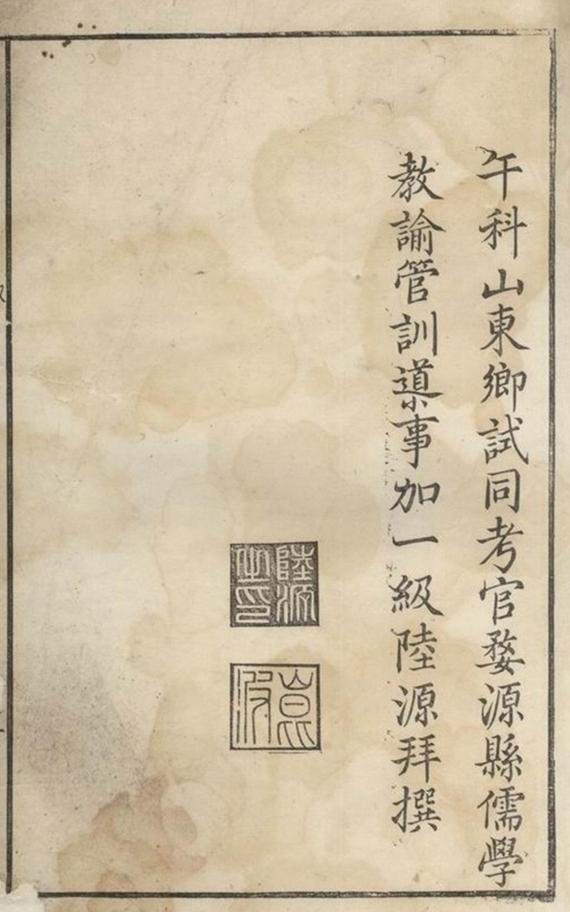 午科山東鄉試同考官婺源縣儒學
教諭管訓導事加一級陸源拜撰
陸源之印